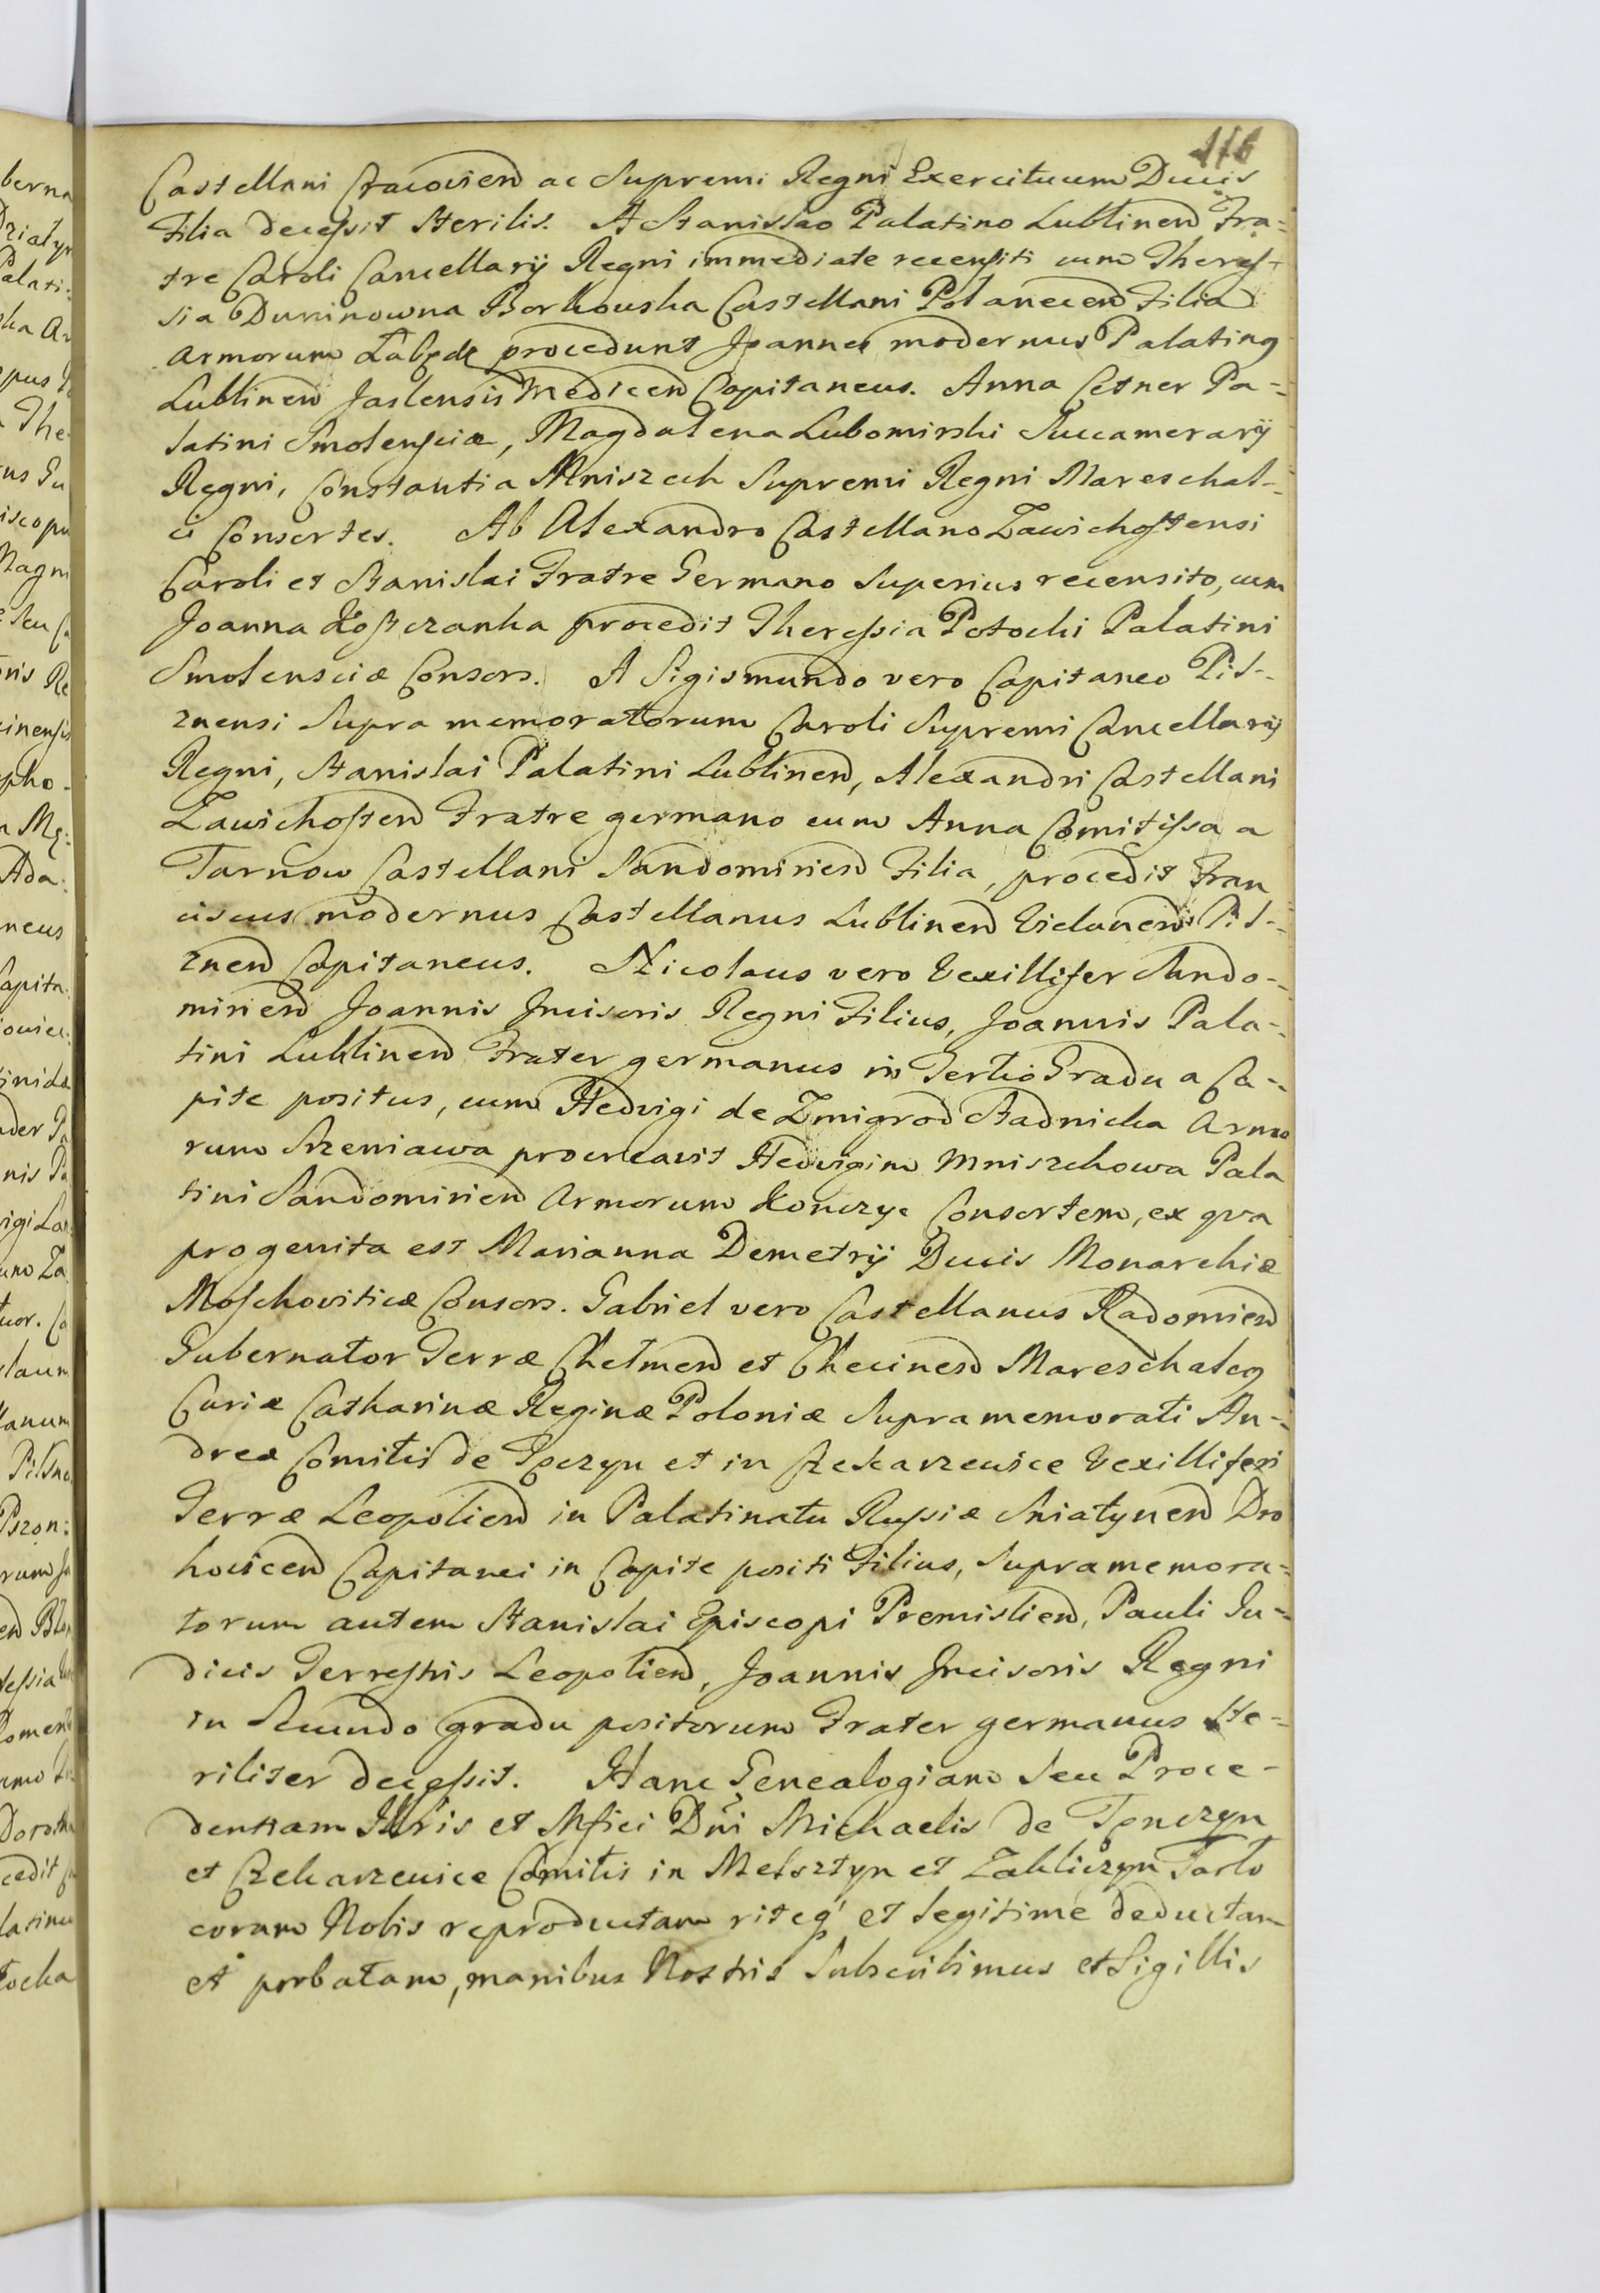 116
Castellani Cracovien ac Supremi Regni Exercituum Ducis
Filia decessit sterilis. A Stanislao Palatino Lublinen Fra-
tre Caroli Cancellarij Regni immediate recensiti cum Theres-
sia Duninowna Borkowska Castellani Polanecen Filia
Armorum Łabędz procedunt Joannes modernus Palatinq
Lublinen Jaslensis Medicen Capitaneus. Anna Cetner Pa-
latini Smolensciæ, Magdalena Lubomirski Succamerarij
Regni, Constantia Mniszech Supremi Regni Mareschal-
ci Consortes. Ab Alexandro Castellano Zawichostensi
Caroli et Stanislai Fratre Germano superius recensito, cum
Joanna procedit Theressia Potocki Palatini
Smolensciæ Consors. A Sigismundo vero Capitaneo Pil-
znensi supra memoratorum Caroli Supremi Cancellarij
Regni, Stanislai Palatini Lublinen, Alexandri Castellani
Zawichosten Fratre germano cum Anna Comitissa a
Tarnow Castellani Sandomirien Filia, procedit Fran
ciscus modernus Castellanus Lublinen Pil-
znen Capitaneus. Nicolaus vero Vexillifer Sando-
mirien Joannis Incisoris Regni Filius, Joannis Pala-
tini Lublinen Frater germanus in Tertio Gradu a Ca-
pite positus, cum Hedvigi de Zmigrod Stadnicka Armo
rum Szreniawa procreavit Hedvigim Mniszchowa Pala
tini Sandomirien Armorum Konczyc Consortem, ex qva
progenita est Marianna Demetrij Ducis Monarchiæ
Moschoviticæ Consors. Gabriel vero Castellanus Radomien
Gubernator Terræ Chelmen et Checinen Mareschalcq
Curiæ Catharinæ Reginæ Poloniæ supra memorati An-
dreæ Comitis de Tęczyn et in Czekarzewice Vexilliferi
Terræ Leopolien in Palatinatu Russiæ Sniatynen Dro
hovicen Capitanei in Capite positi Filius, supramemora-
torum autem Stanislai Episcopi Premislien, Pauli Ju-
dicis Terrestris Leopolien, Joannis Incisoris Regni
in Secundo gradu positorum Frater germanus Ste-
riliter decessit. Hanc Genealogiam seu Proce-
dentiam Illris et Mfici Dni Michaelis de Tęnczyn
et Czekarzewice Comitis in Melsztyn et Zakliczyn Tarło
coram Nobis reproductam riteq et legitime deductam
et probatam, manibus Nostris Subscribimus et Sigillis